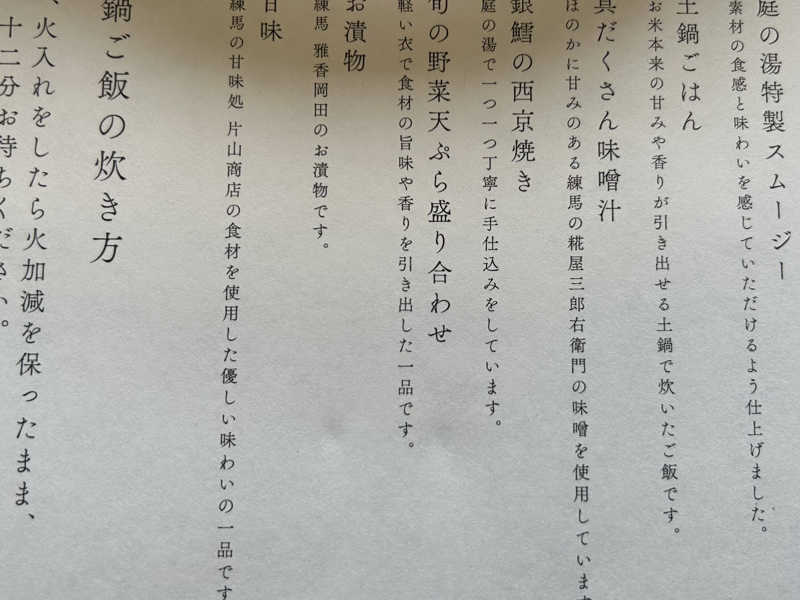 庭の湯特製スムージー
素材の食感と味わいを感じていただけるよう仕上げました。
土鍋ごはん
お米本来の甘みや香りが引き出せる土鍋で炊いたご飯です。
具だくさん味噌汁
ほのかに甘みのある練馬の糀屋三郎右衛門の味噌を使用しています
銀鱈の西京焼き
庭の湯で一つ一つ丁寧に手仕込みをしています。
旬の野菜天ぷら盛り合わせ
軽い衣で食材の旨味や香りを引き出した一品です。
お漬物
練馬 雅香岡田のお漬物です。
甘味
練馬の甘味処 片山商店の食材を使用した優しい味わいの一品です
鍋ご飯の炊き方
、火入れをしたら火加減を保ったまま、
十二分お待ちください。